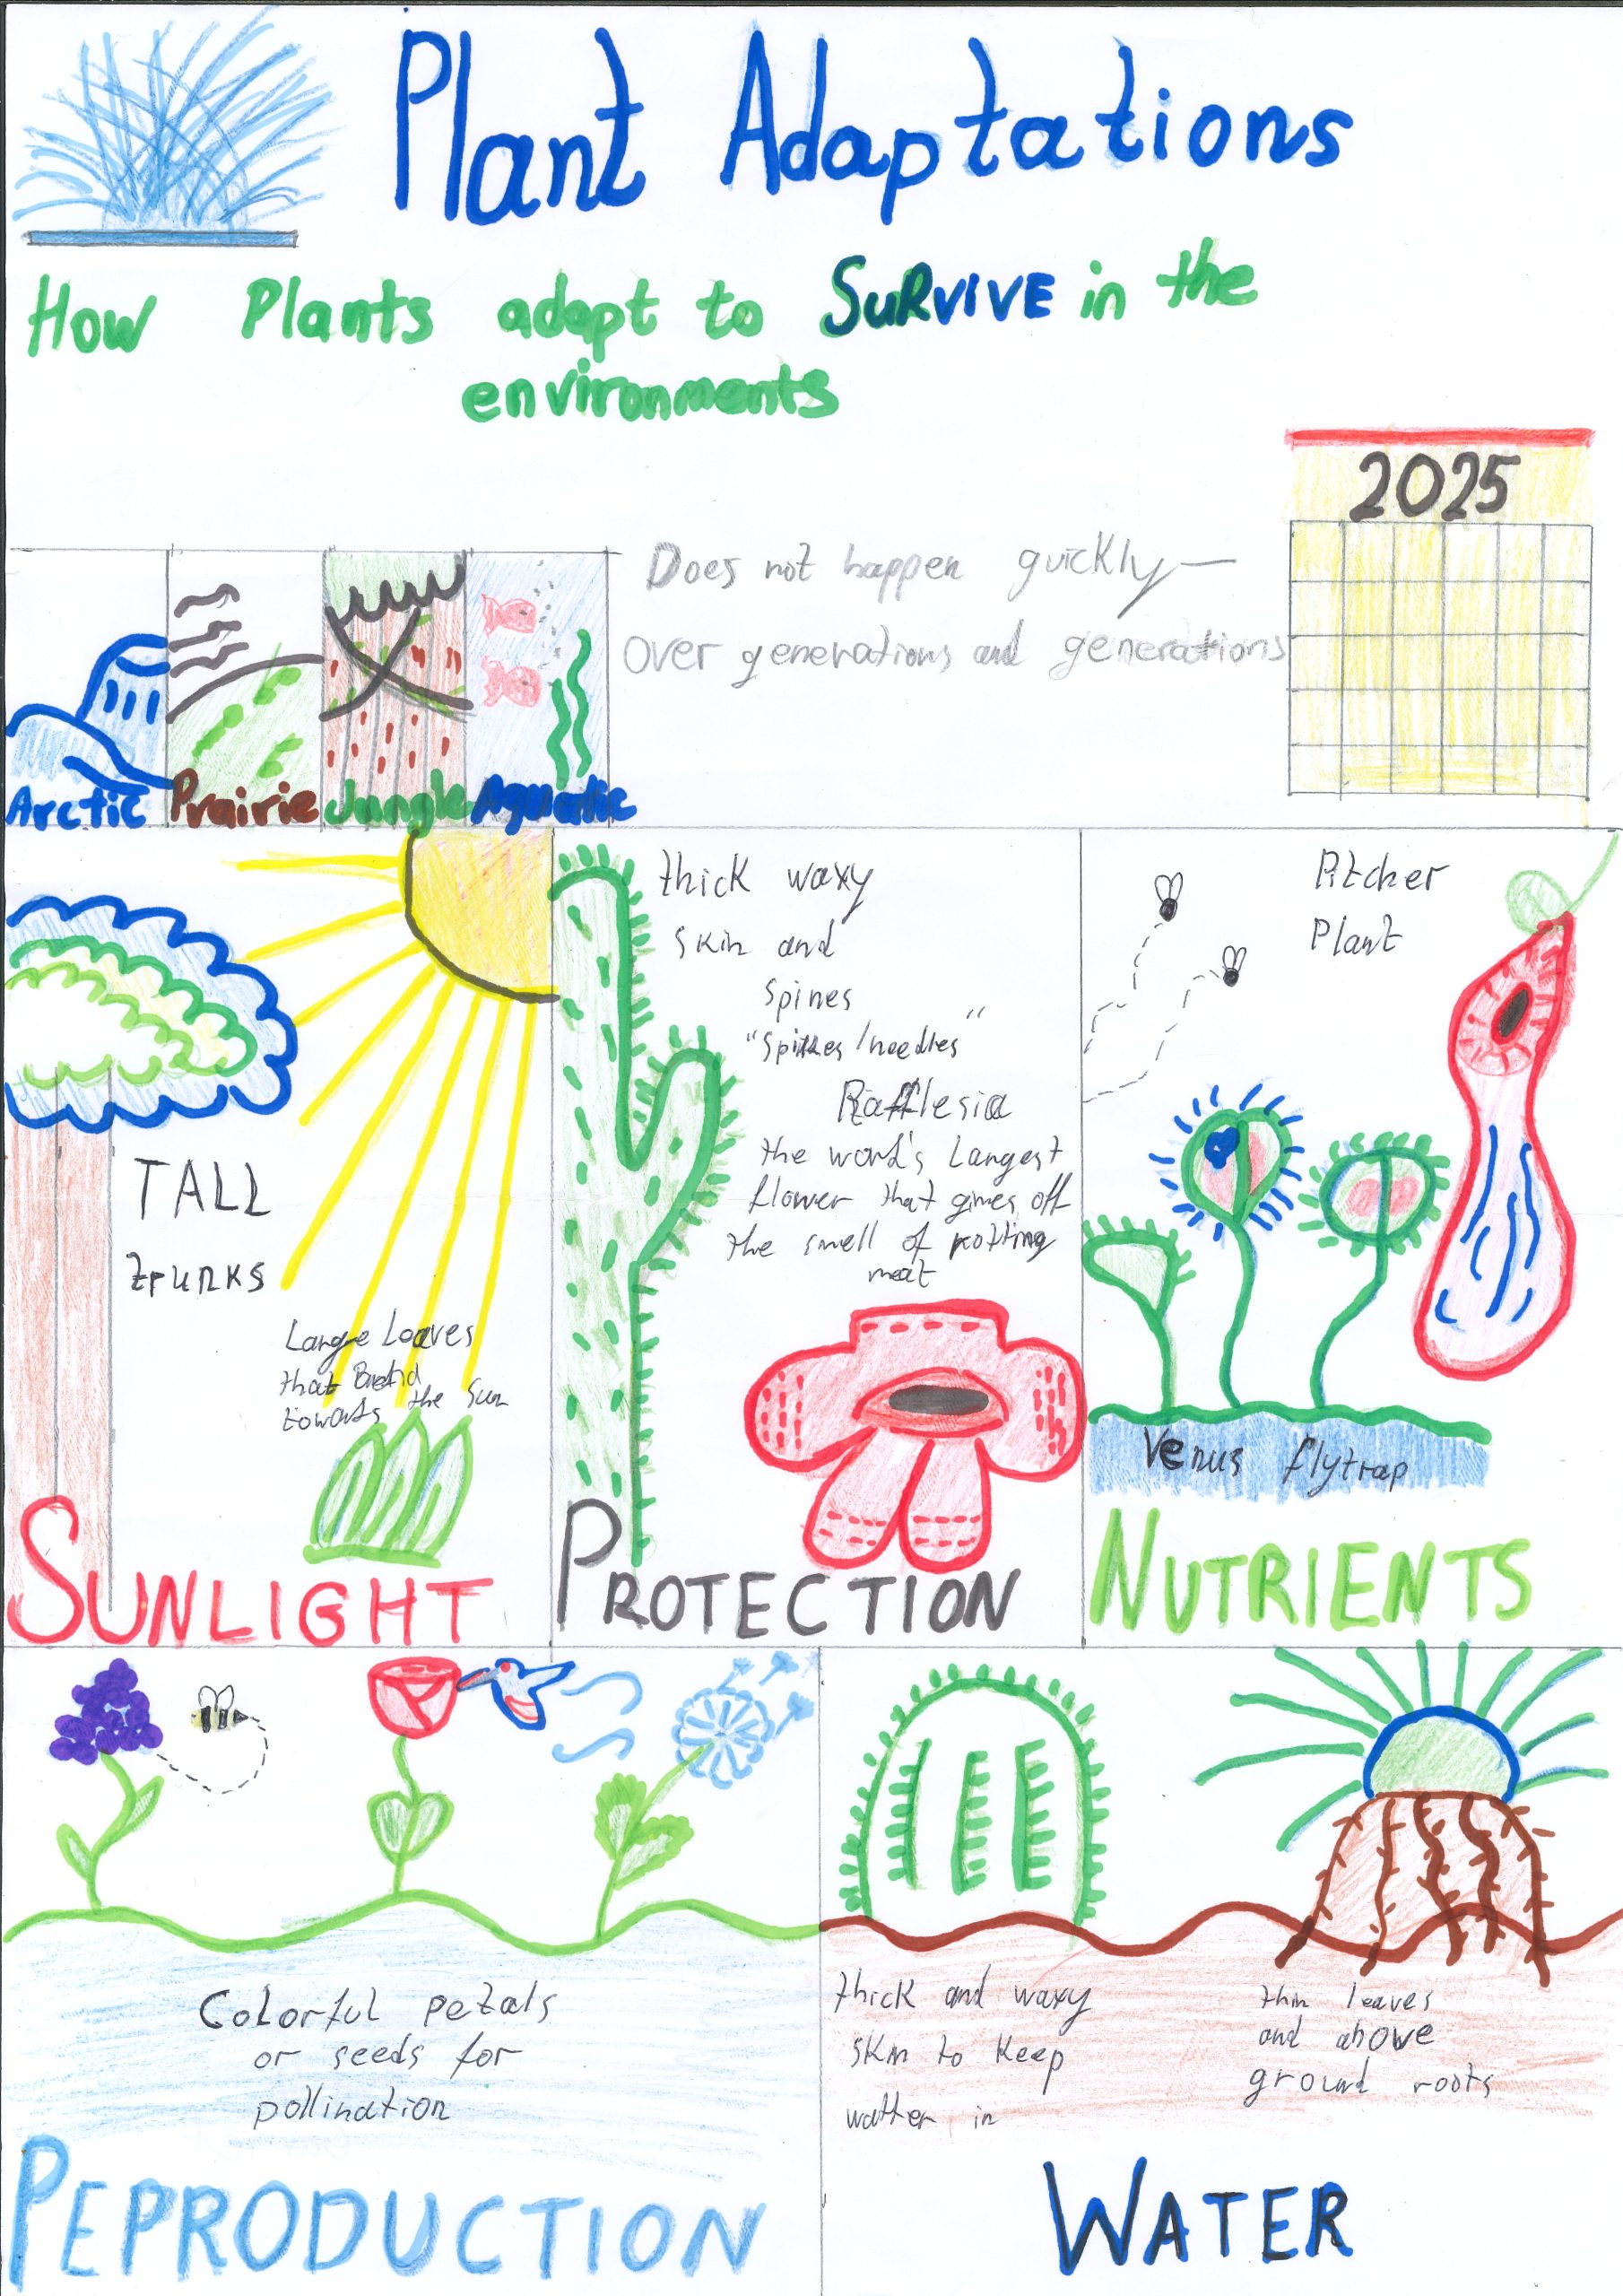 Plant Adaptations
How Plants adapt to SuRVIVE in the
environments
2025
Does not happen quickly —
over generations and generations
Arctic Prairie Jungle Aquatic
TALL
trunks
Large Leaves
that Bend
towards the Sun
SUNLIGHT
thick waxy
skin and
spines
"Spikes/needles"
Rafflesia
the world's Largest
flower that gives off
the smell of rotting
meat
PROTECTION
Pitcher
Plant
Venus flytrap
NUTRIENTS
Colorful petals
or seeds for
pollination
PEPRODUCTION
thick and waxy
skin to keep
watter in
thin leaves
and above
ground roots
WATER